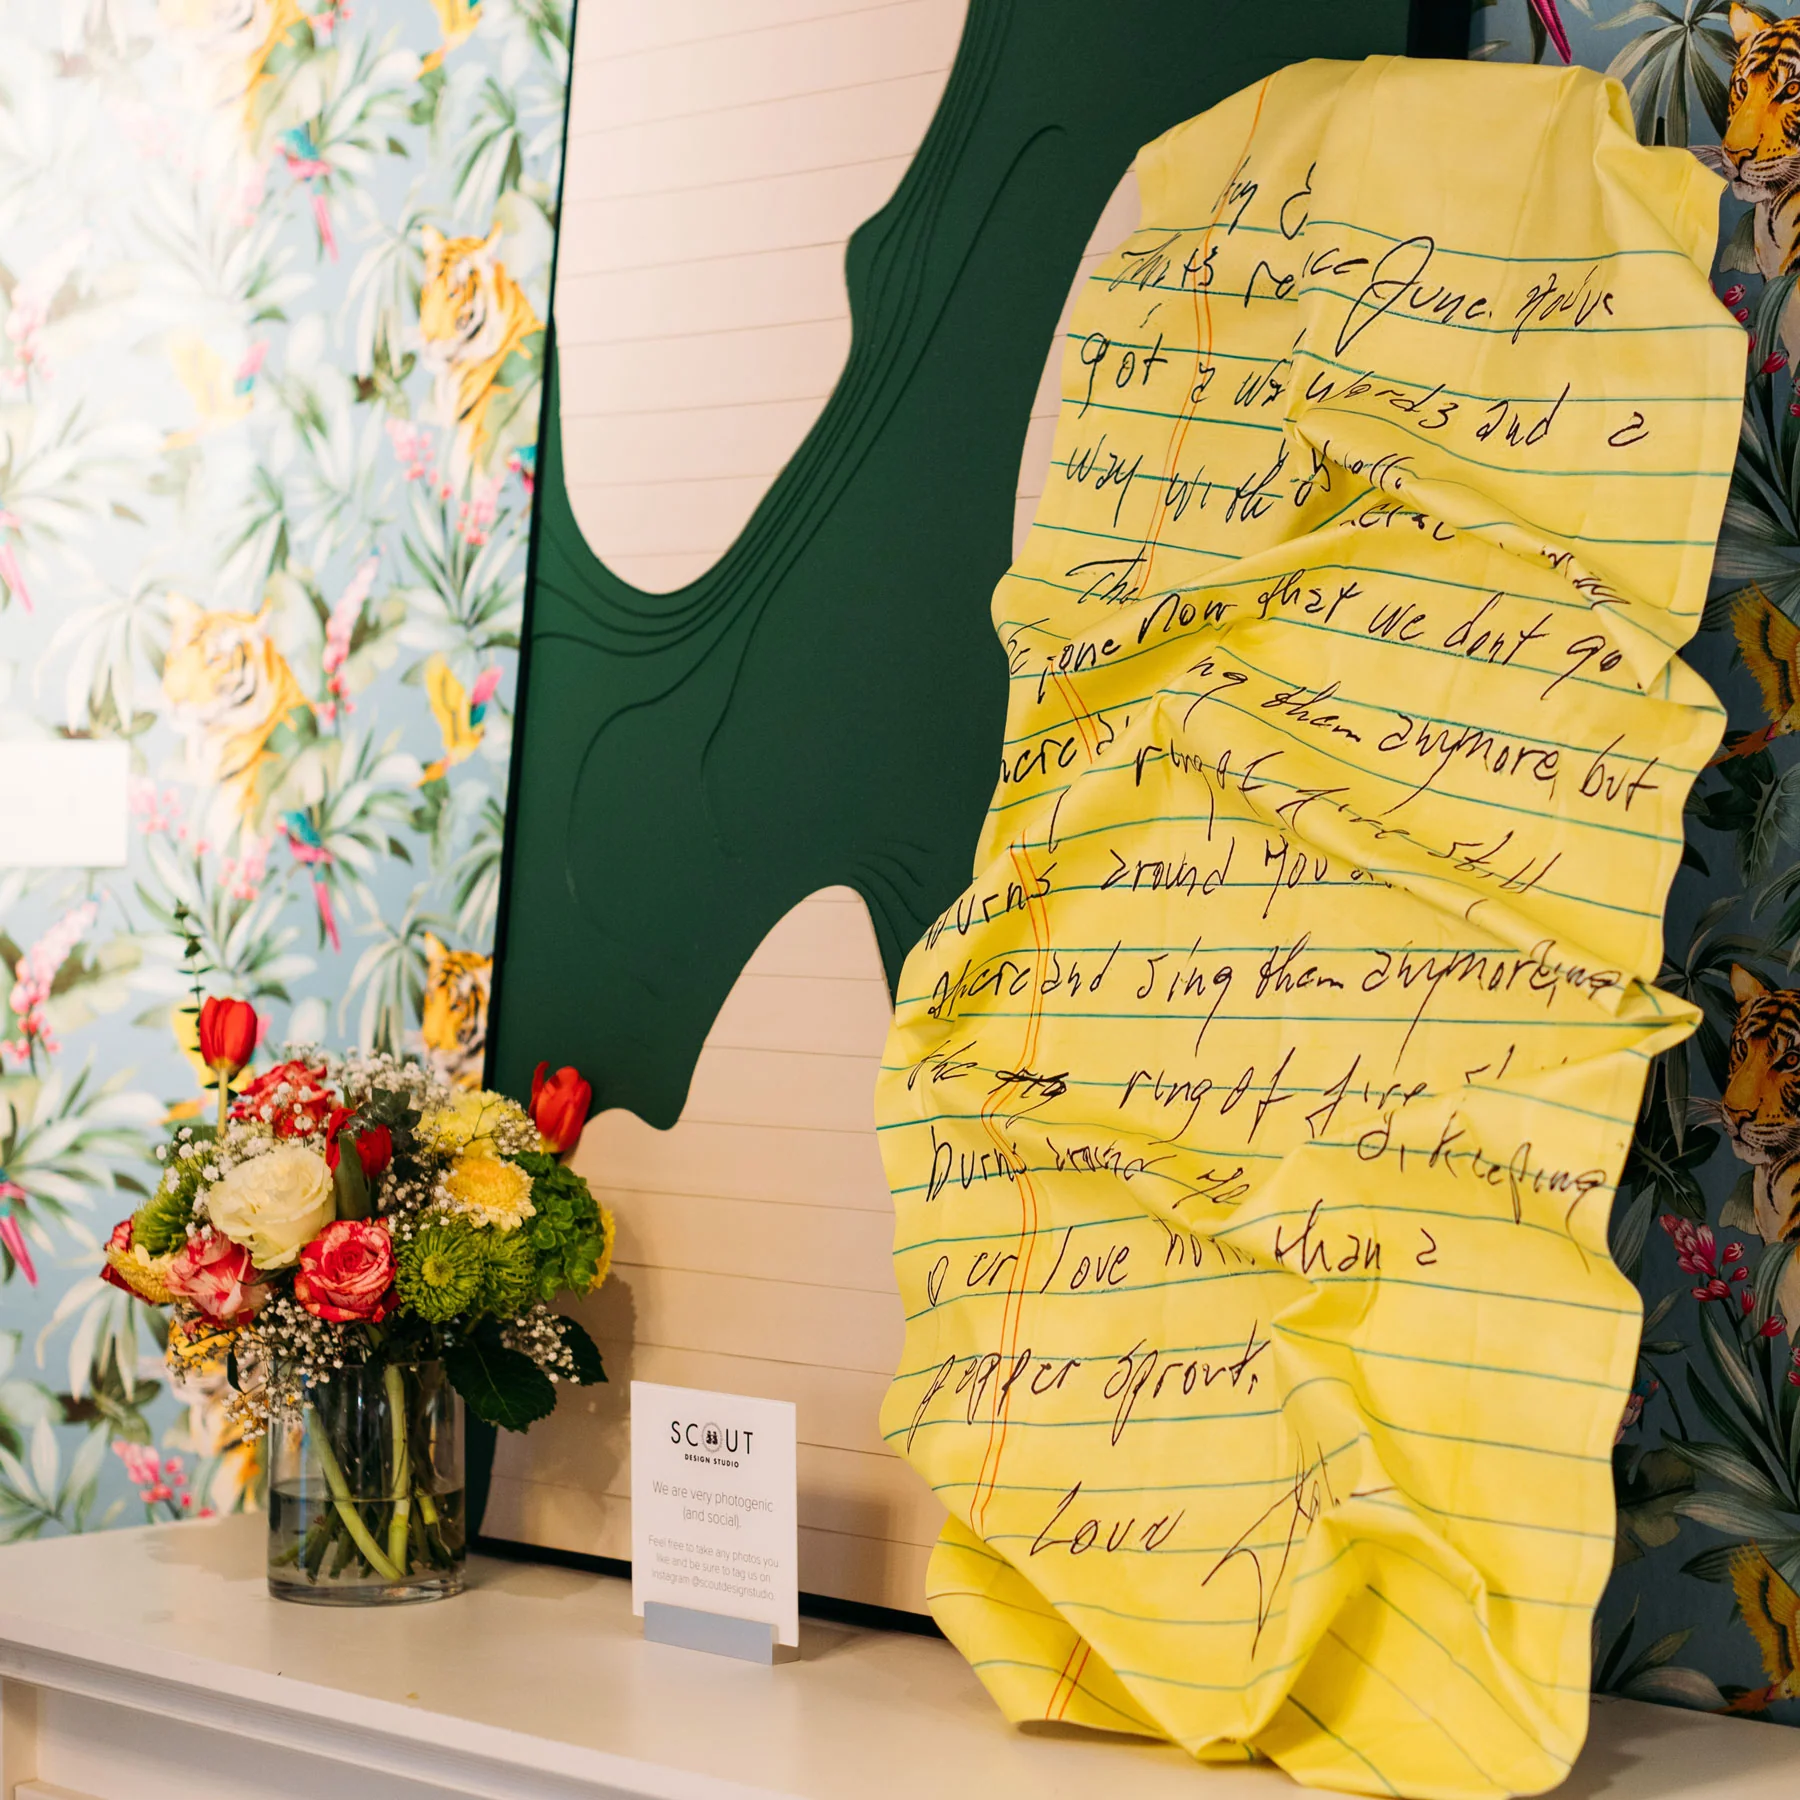 That's June. You've
got a way words and a
way with
The
gone now that we don't go
them anymore, but
ring of fire still
burns around you
there and sing them anymore,
the ring of fire
burns around
keeping
our love than a
pepper sprout.
Love John
SCOUT
DESIGN STUDIO
We are very photogenic
(and social).
Feel free to take any photos you
like and be sure to tag us on
Instagram @scoutdesignstudio.